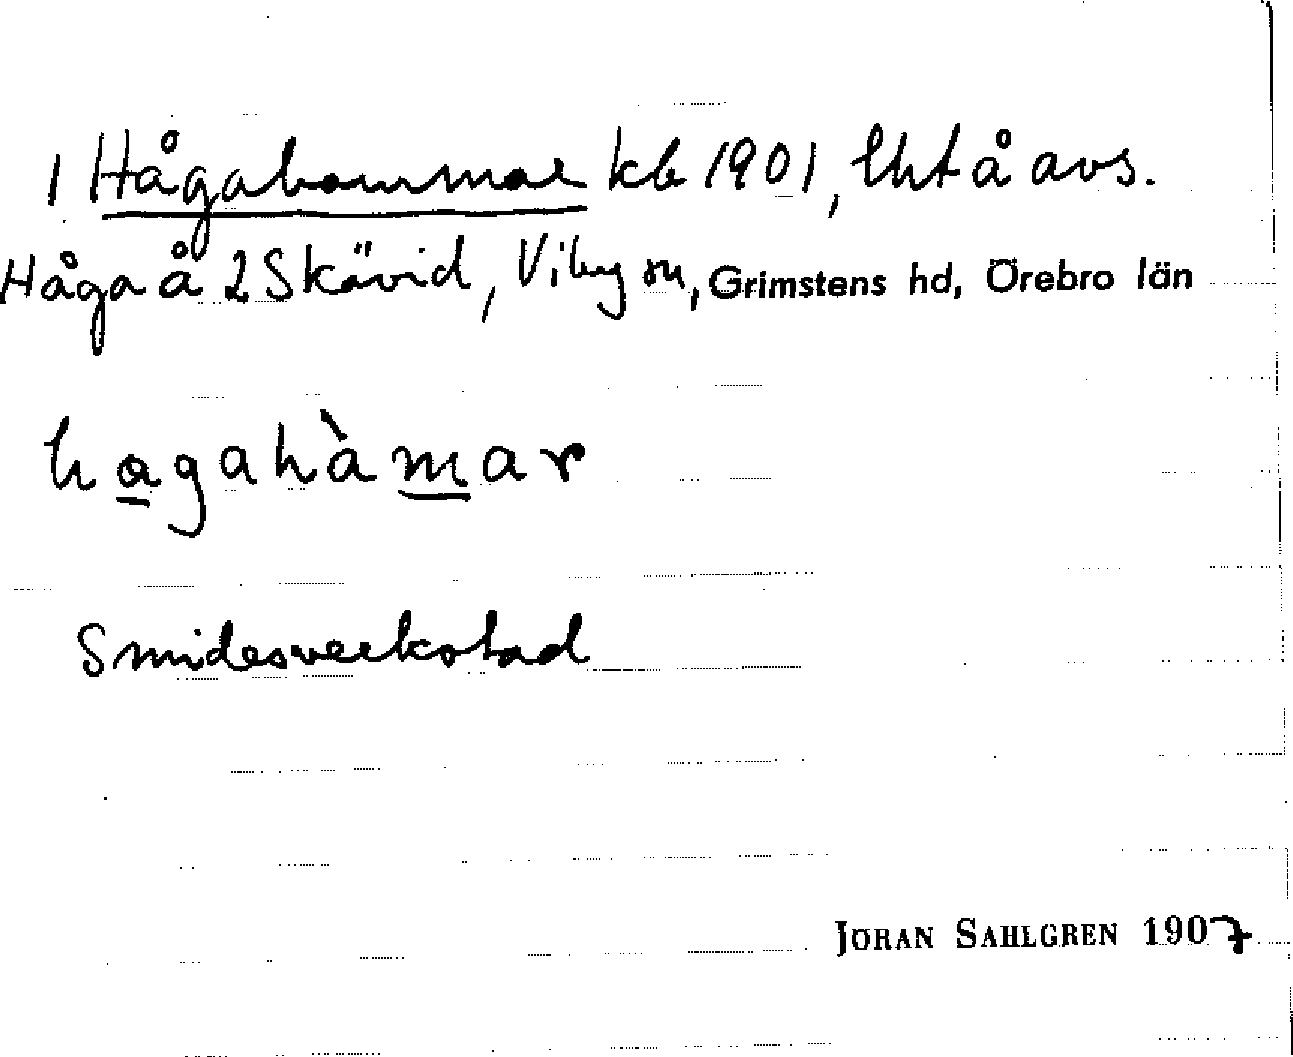 1 Hågahammar kb 1901, lht å avs.
Håga å 2 Skävid, Viby sn, Grimstens hd, Örebro län
hagahàmar
Smidesverkstad
JORAN SAHLGREN 1907